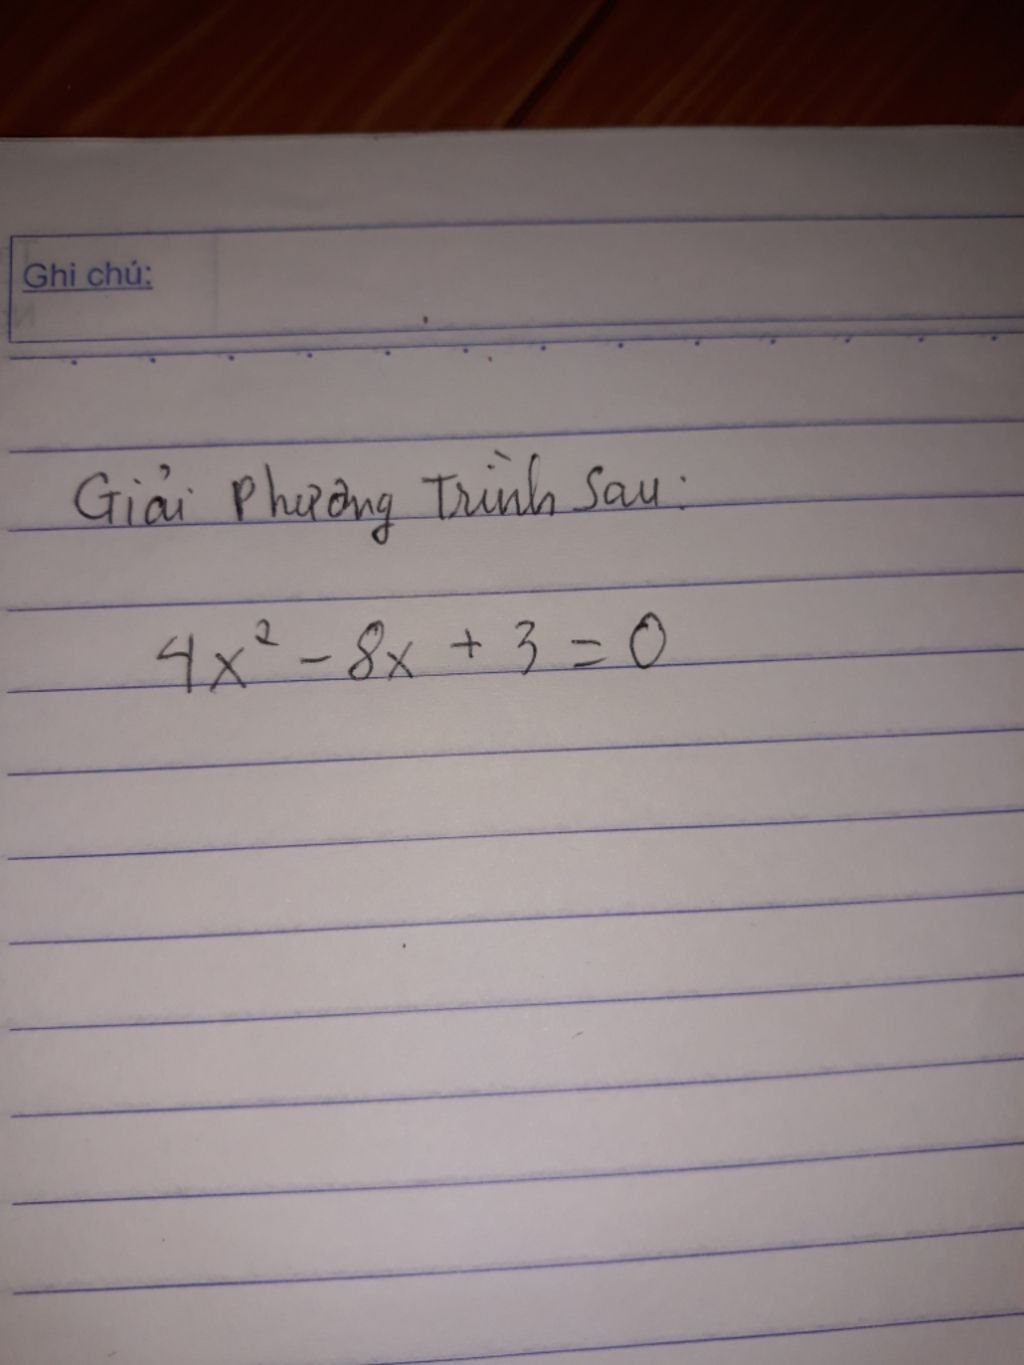 Ghi chú:
Giải Phương Trình Sau:
4x² - 8x + 3 = 0